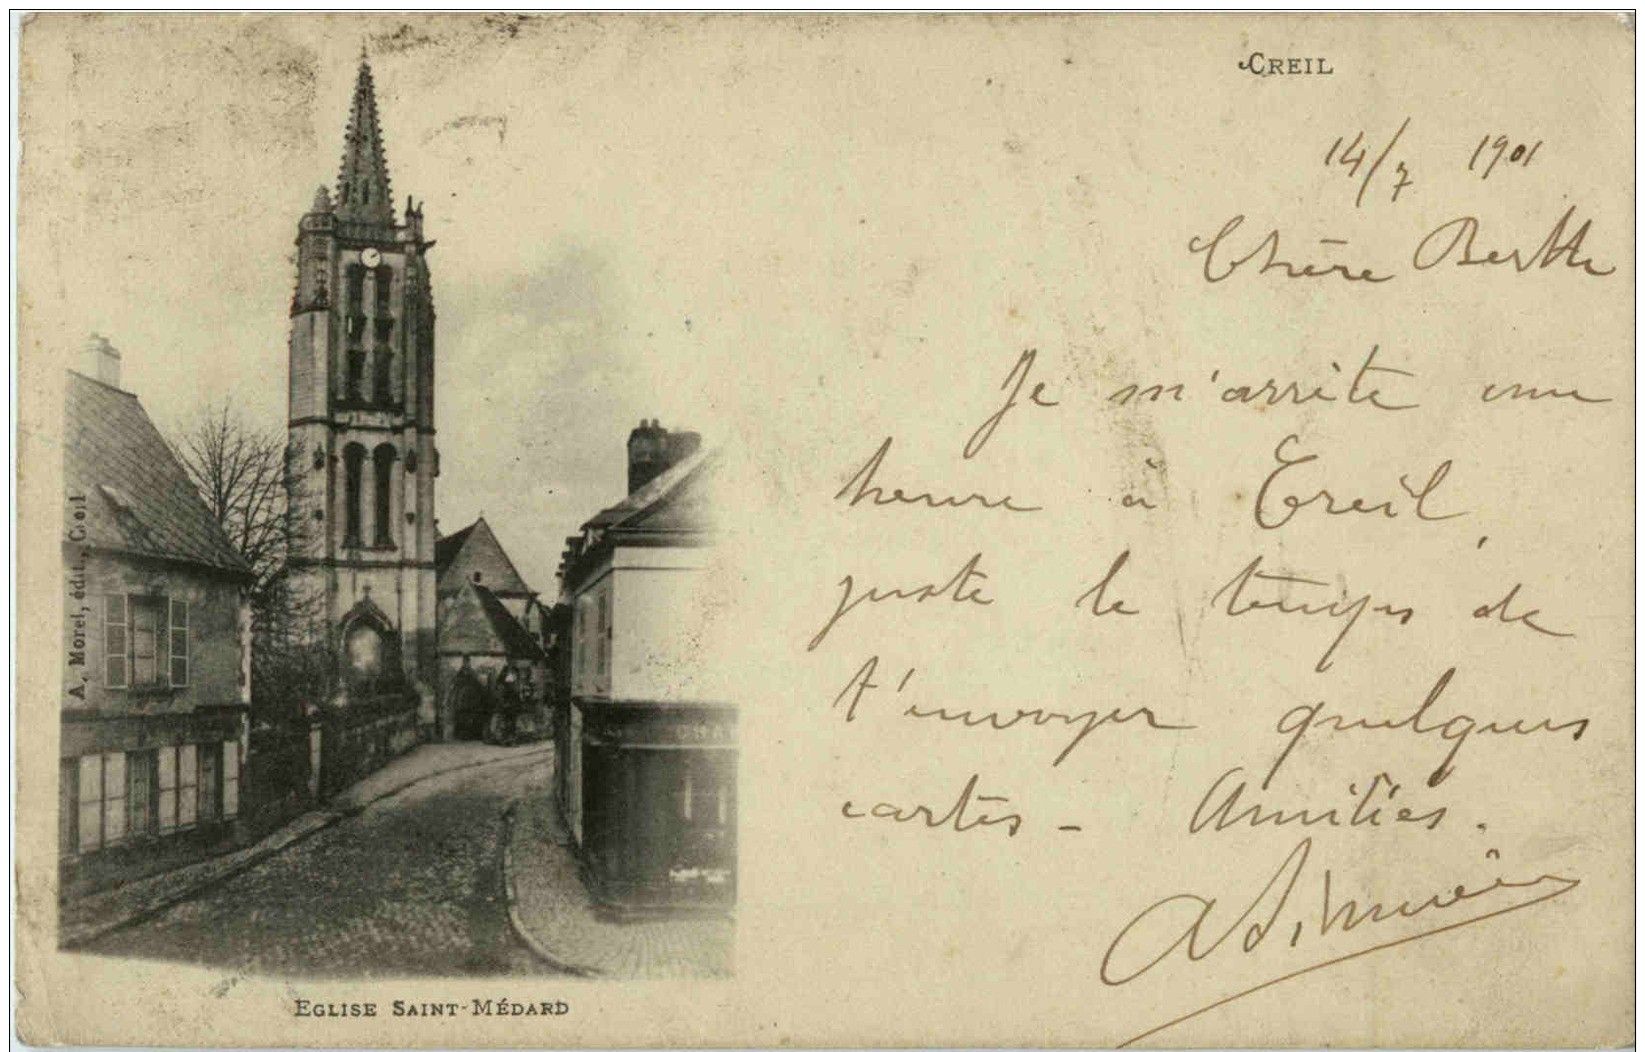 CREIL
14/7 1901
Chère Berthe
Je m'arrête une
heure à Creil,
juste le temps de
t'envoyer quelques
cartes - Amitiés.
A. Morel, édit., Creil
CHA
EGLISE SAINT-MÉDARD